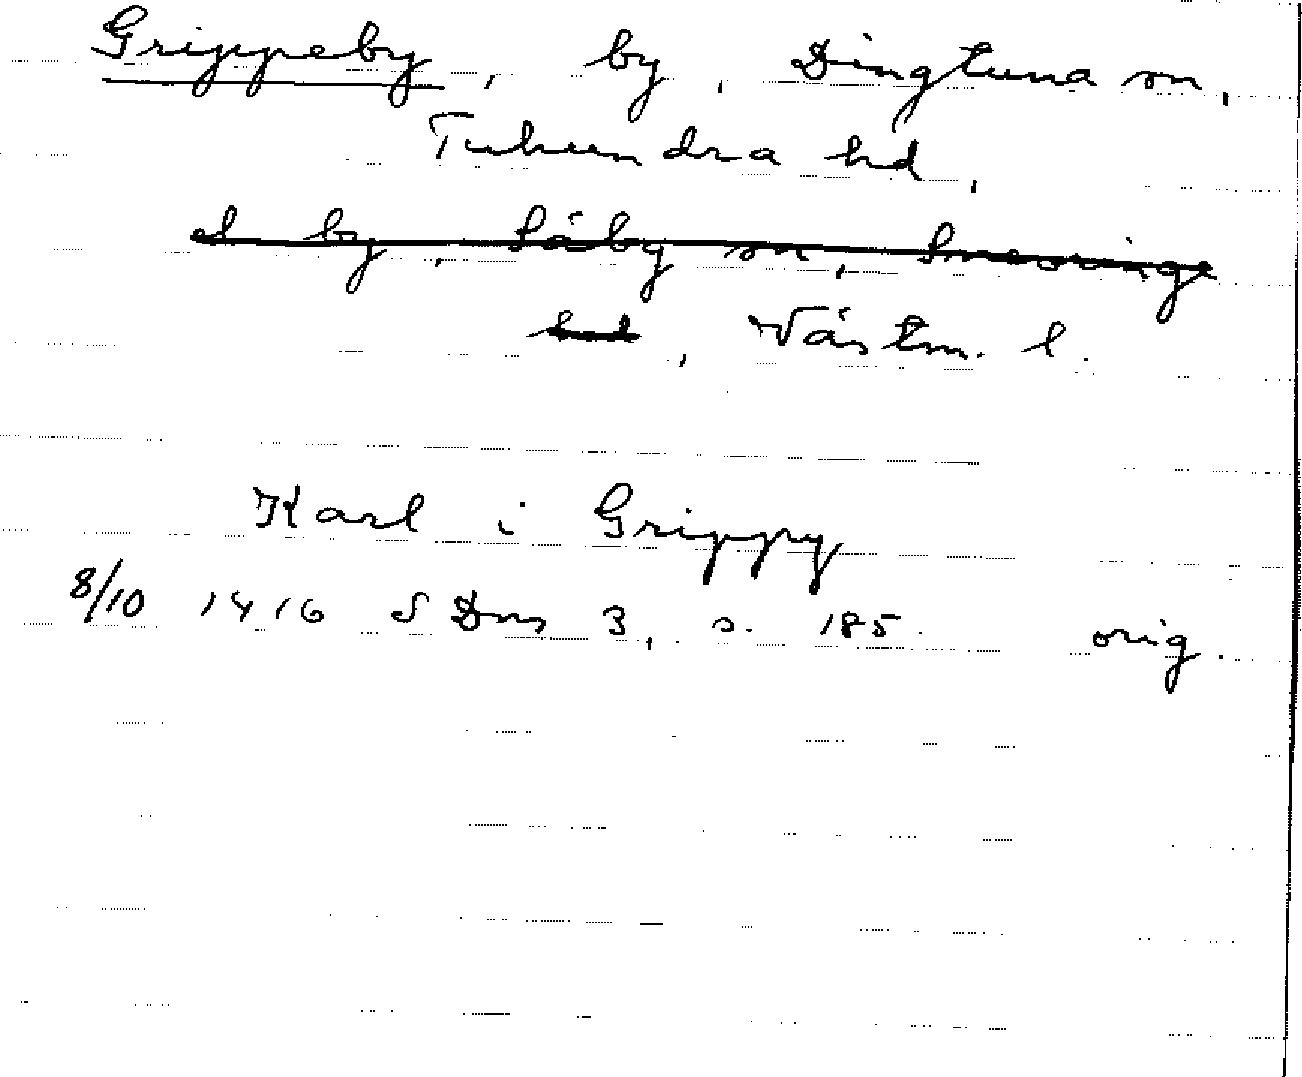 Grippeby, by, Dingtuna sn,
Tuhundra hd,
el by, Säby sn, Snevringe
hd, Västm. l.
Karl i Grippy
8/10 1416 SDns 3, s. 185. orig.